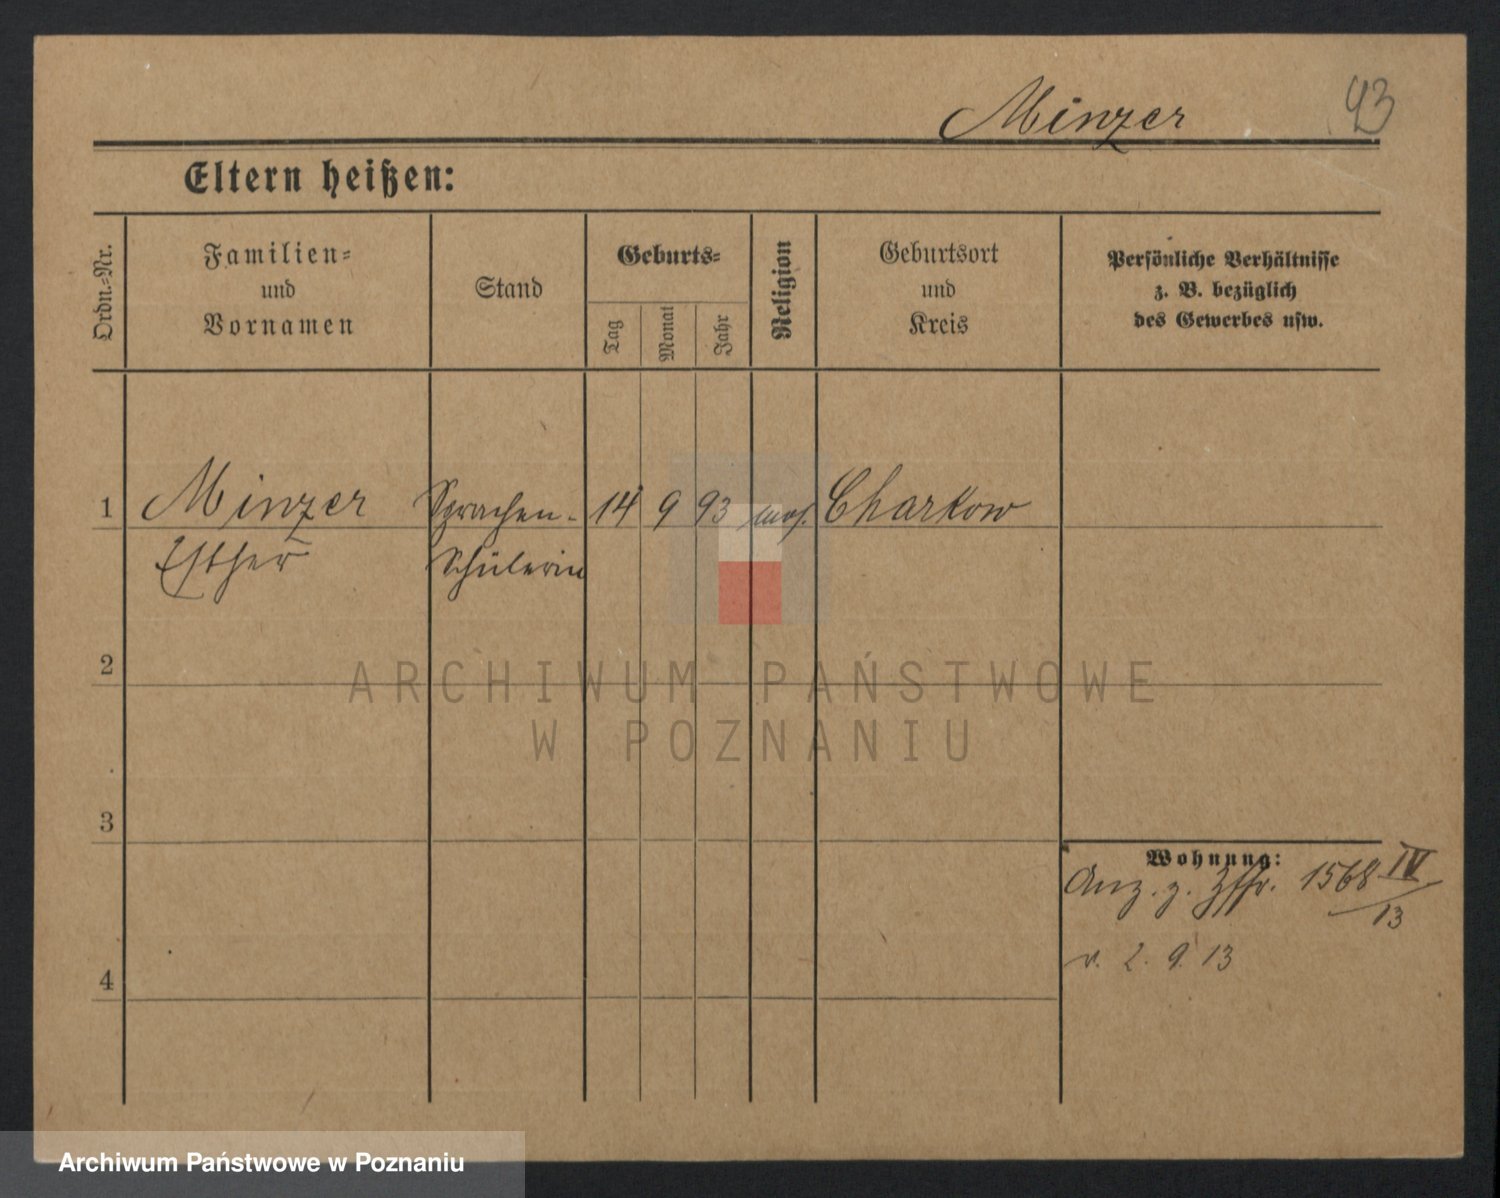 Minzer 93
Eltern heißen:
Ordn.-Nr.
Familien-
und
Vornamen
Stand
Geburts-
Tag
Monat
Jahr
Religion
Geburtsort
und
Kreis
Persönliche Verhältnisse
z. B. bezüglich
des Gewerbes usw.
1 Minzer Sprachen- 14 9 93 mos. Charkow
Esther Schülerin
2
3
4
Wohnung:
Anz. z. 1568 IV
13
v. 2. 9. 13
ARCHIWUM PAŃSTWOWE
W POZNANIU
Archiwum Państwowe w Poznaniu